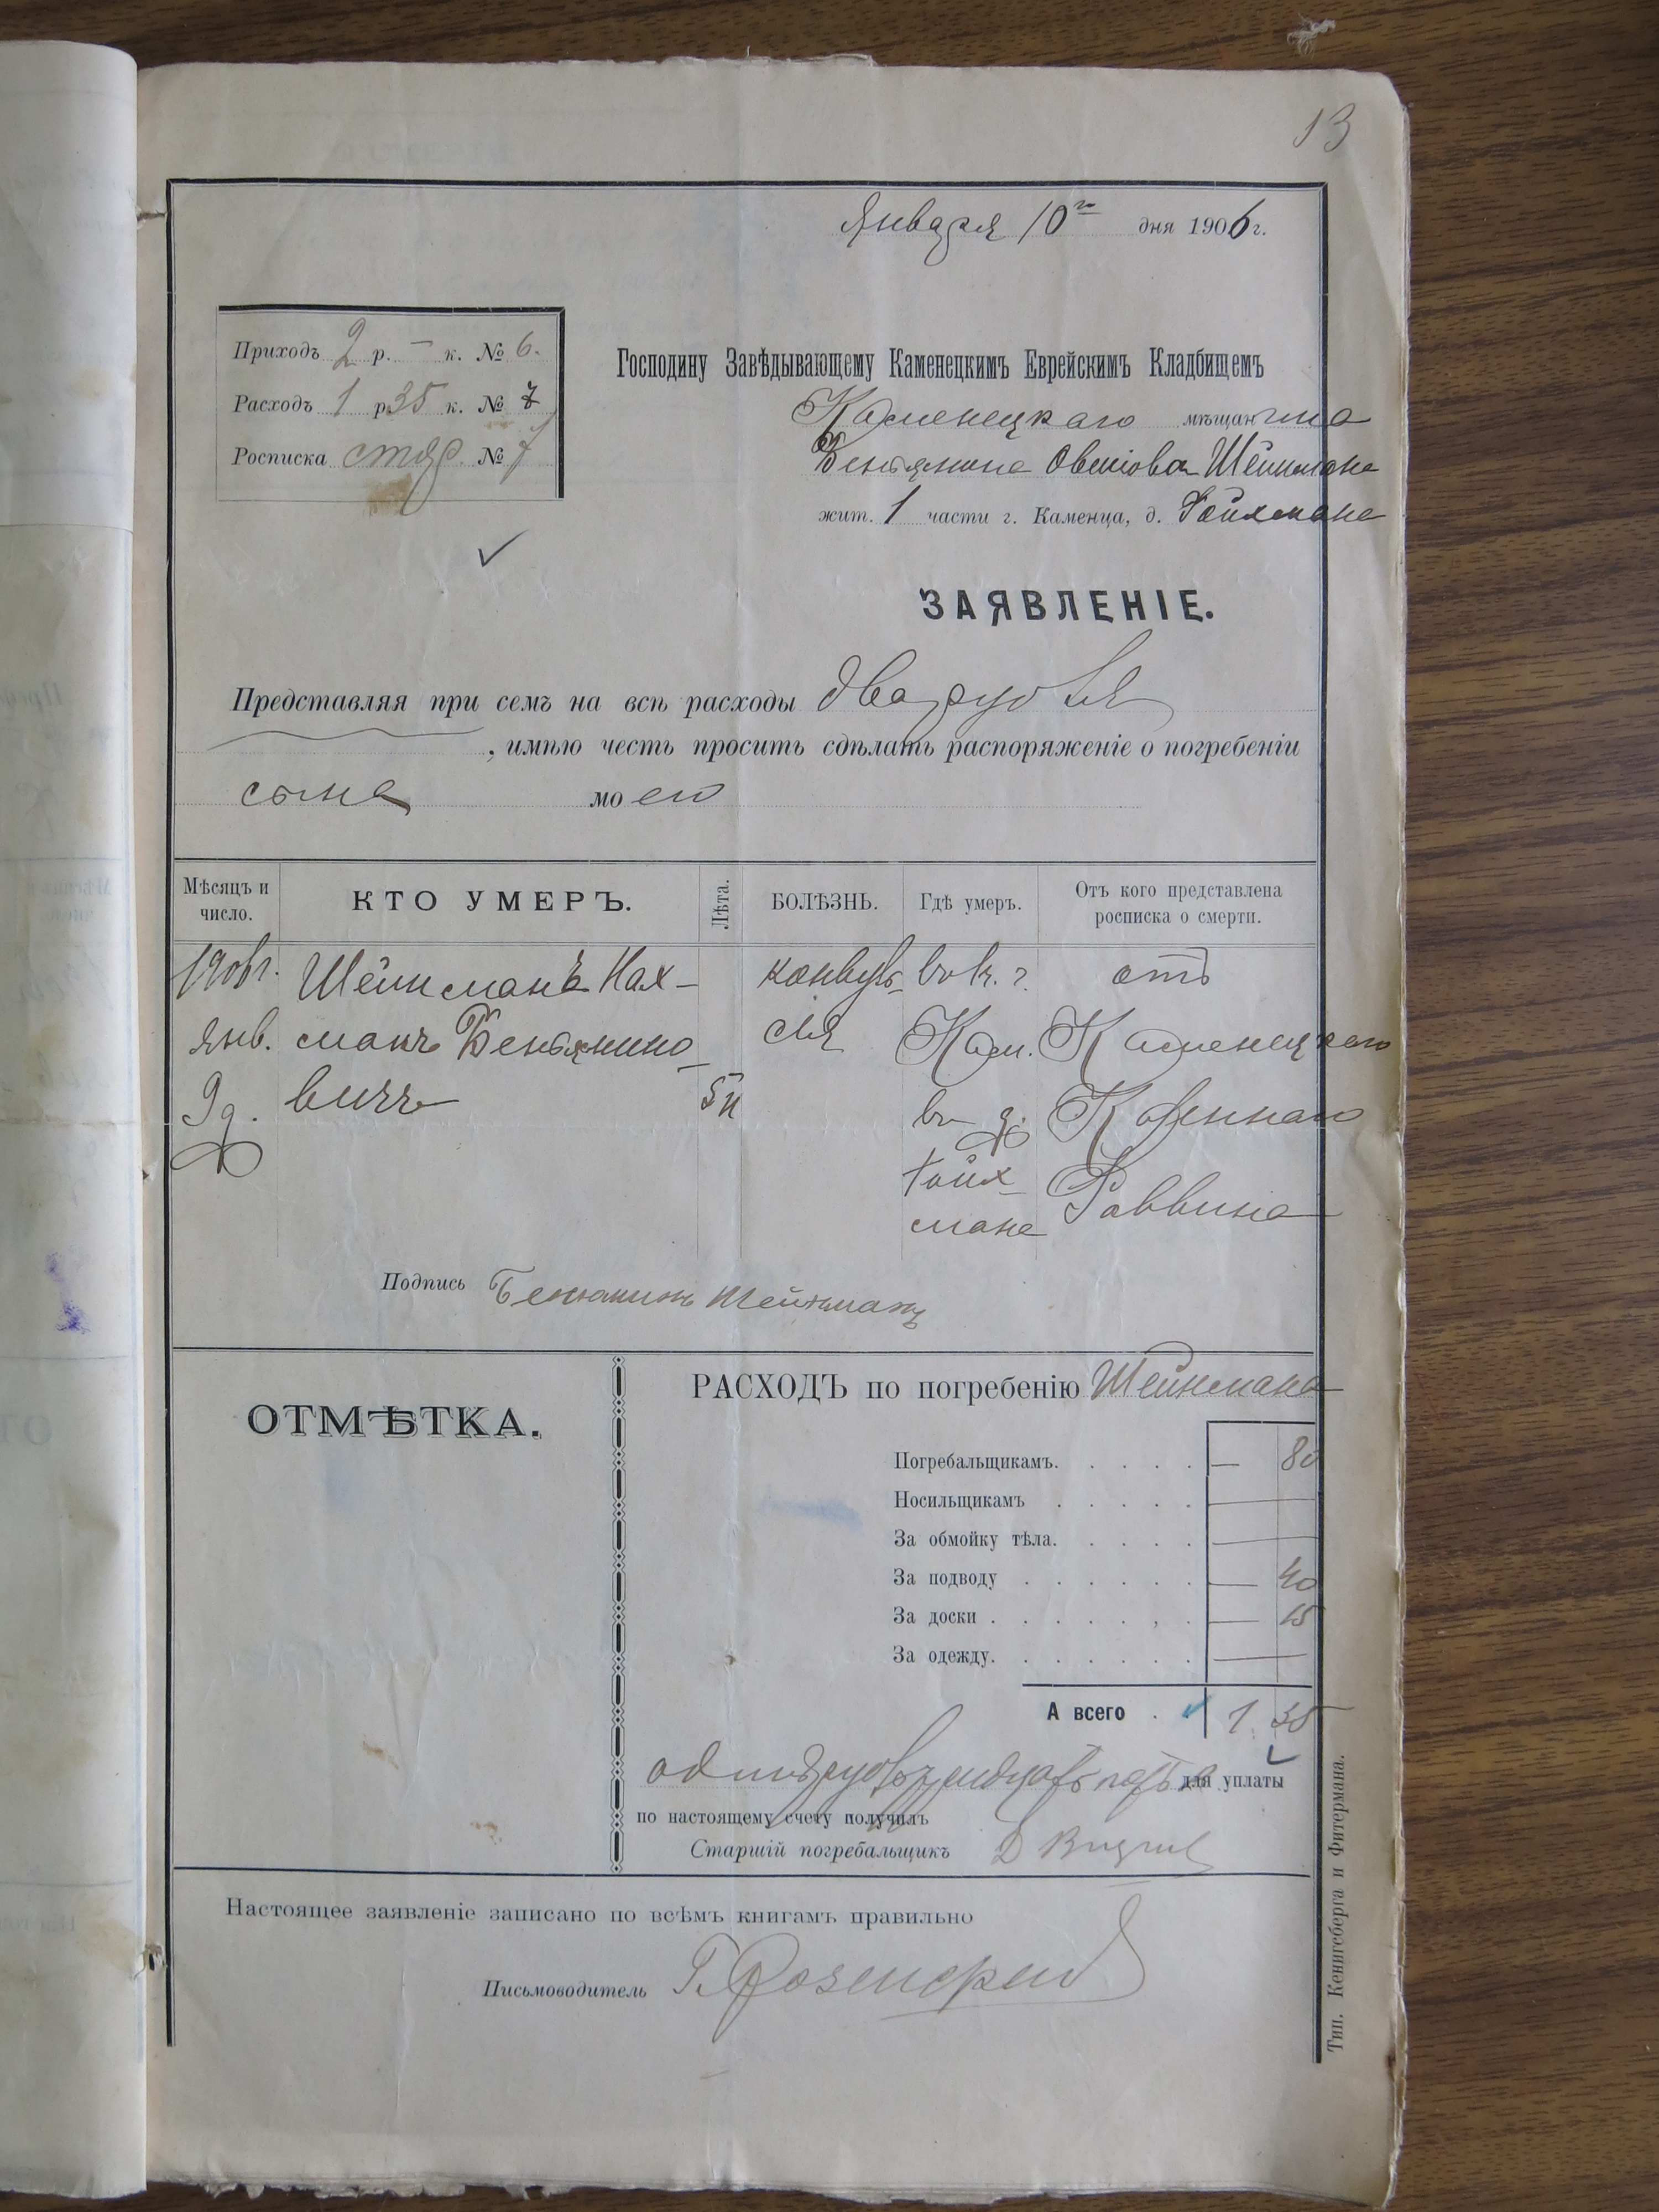 13
Января 10го дня 1906 г.
Приходъ 2 р. — к. № 6.
Расходъ 1 р 35 к. № 7
Росписка стар. № 7
Господину Завѣдывающему Каменецкимъ Еврейскимъ Кладбищемъ
Каменецкаго мѣщанина
Беньямина Овшіова Шейнмана
жит. 1 части г. Каменца, д. Гойхмана
ЗАЯВЛЕНІЕ.
Представляя при семъ на всѣ расходы два рубля
, имѣю честь просить сдѣлать распоряженіе о погребеніи
сына моего
Мѣсяцъ и число. КТО УМЕРЪ. Лѣта. БОЛѢЗНЬ. Гдѣ умеръ. Отъ кого представлена росписка о смерти.
1906 г. Шейнманъ Нах- конвуль- въ г. отъ
Янв. манъ Беньямино- сія Кам. Каменецкаго
9 д. вичъ 5 н въ д. Казеннаго
Гойх- Раввина
мана
Подпись Бенюминъ Шейнманъ
ОТМѢТКА.
РАСХОДЪ по погребенію Шейнмана
Погребальщикамъ. . . . . — 80
Носильщикамъ . . . . . —
За обмойку тѣла. . . . . —
За подводу . . . . . . — 40
За доски . . . . . . . — 15
За одежду. . . . . . . —
А всего . 1 35
одинъ руб. тридцать пять к. для уплаты
по настоящему счету получилъ
Старшій погребальщикъ Д
Настоящее заявленіе записано по всѣмъ книгамъ правильно
Письмоводитель Г. Розенфельд
Тип. Кенигсберга и Фитермана.